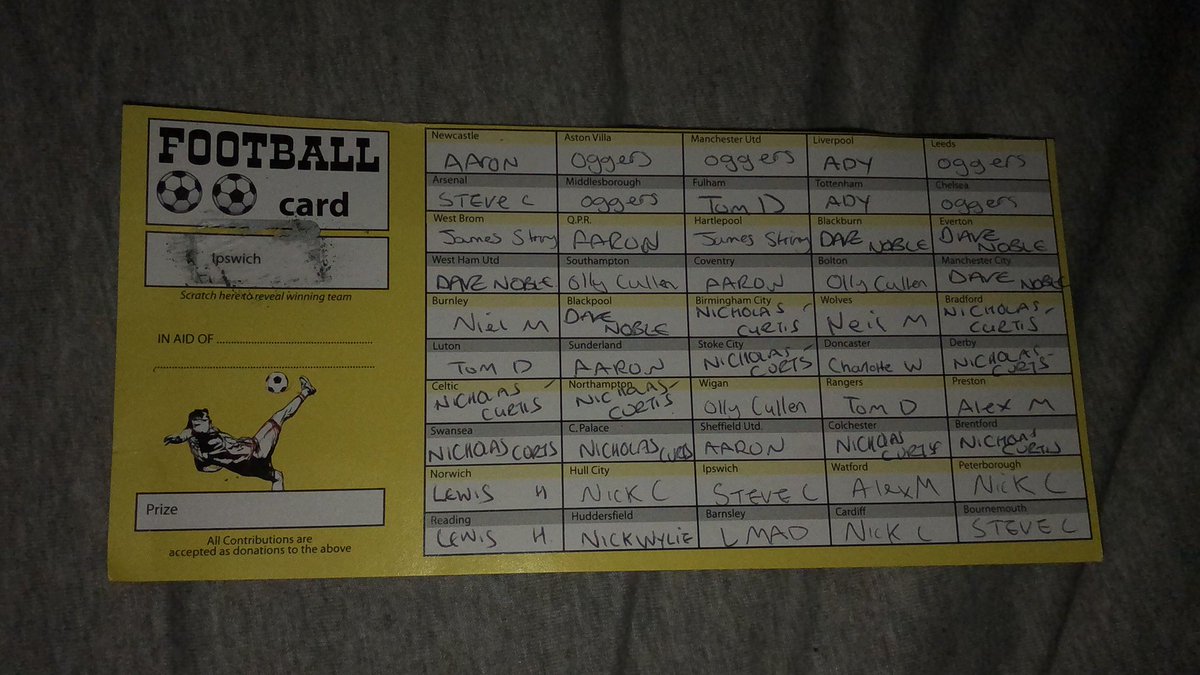 FOOTBALL
card
Ipswich
Scratch here to reveal winning team
IN AID OF
Prize
All Contributions are
accepted as donations to the above
Newcastle Aston Villa Manchester Utd Liverpool Leeds
AARON oggers oggers ADY oggers
Arsenal Middlesborough Fulham Tottenham Chelsea
STEVE C oggers Tom D ADY oggers
West Brom Q.P.R. Hartlepool Blackburn Everton
James Strong AARON James Strong DAVE NOBLE DAVE NOBLE
West Ham Utd Southampton Coventry Bolton Manchester City
DAVE NOBLE Olly Cullen AARON Olly Cullen DAVE NOBLE
Burnley Blackpool Birmingham City Wolves Bradford
Niel M DAVE NOBLE NICHOLAS CURTIS Neil M NICHOLAS CURTIS
Luton Sunderland Stoke City Doncaster Derby
Tom D AARON NICHOLAS CURTIS Charlotte W NICHOLAS CURTIS
Celtic Northampton Wigan Rangers Preston
NICHOLAS CURTIS NICHOLAS CURTIS Olly Cullen Tom D Alex M
Swansea C. Palace Sheffield Utd. Colchester Brentford
NICHOLAS CURTIS NICHOLAS CURTIS AARON NICHOLAS CURTIS NICHOLAS CURTIS
Norwich Hull City Ipswich Watford Peterborough
LEWIS H NICK C STEVE C Alex M NICK C
Reading Huddersfield Barnsley Cardiff Bournemouth
LEWIS H. NICK WYLIE L MAD NICK C STEVE C